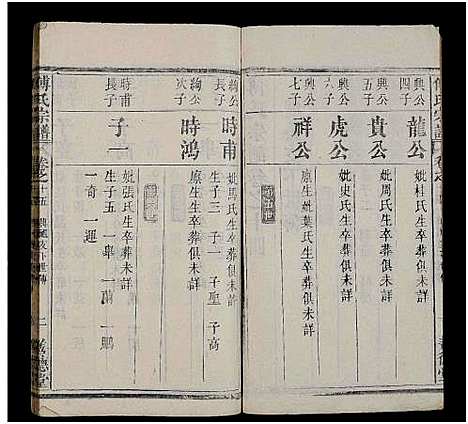 傅氏宗譜
興公
四子
龍公
妣桂氏生卒葬俱未詳
興公
五子
貴公
妣周氏生卒葬俱未詳
興公
六子
虎公
妣史氏生卒葬俱未詳
興公
七子
祥公
原生妣葉氏生卒葬俱未詳
絢公
長子
時甫
妣馬氏生卒葬俱未詳
生子三 子一 子聖 子高
絢公
次子
時鴻
原生卒葬俱未詳
時甫
長子
子一
妣張氏生卒葬俱未詳
生子五 一舉 一萬 一鵬
一奇 一運
傅氏宗譜
卷之十五
二